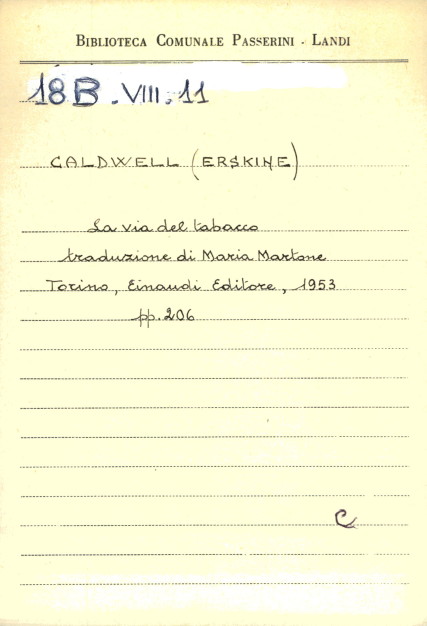 BIBLIOTECA COMUNALE PASSERINI - LANDI
18B.VIII.11
CALDWELL (ERSKINE)
La via del tabacco
traduzione di Maria Martone
Torino, Einaudi Editore, 1953
pp. 206
C